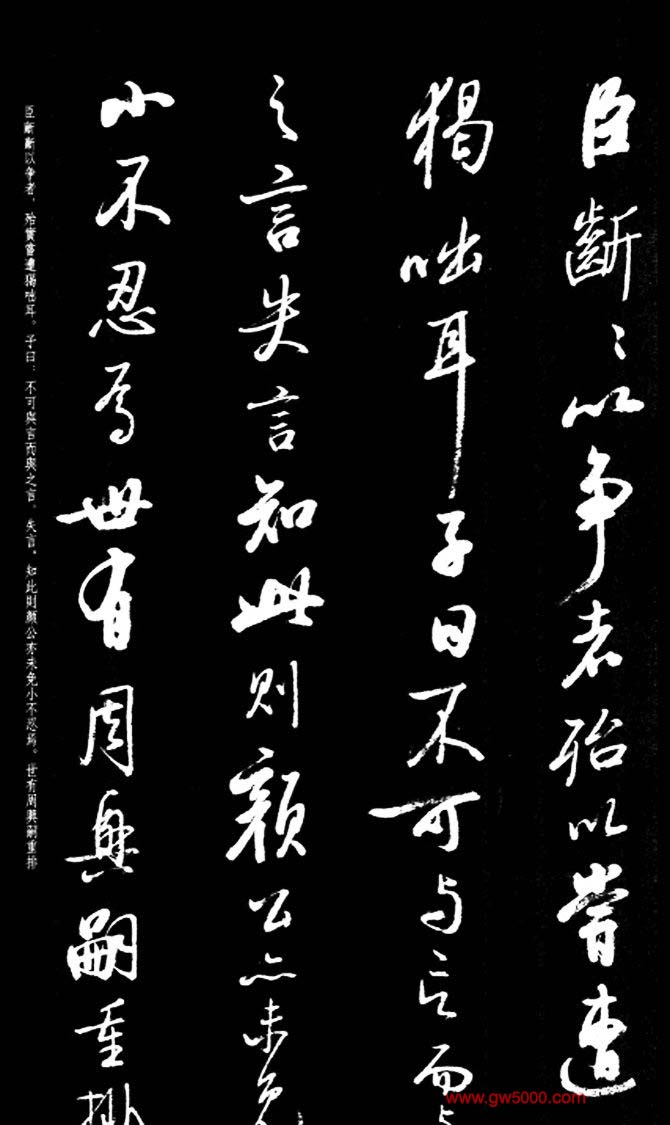 臣齗〻以争者殆以嘗遭
猲咄耳子曰不可与言而与
之言失言知此则颜公亦未免
小不忍焉世有周興嗣重排
臣齗齗以争者，殆實嘗遭猲咄耳。子曰：不可與言而與之言，失言。知此則顏公亦未免小不忍焉。世有周興嗣重排
www.gw5000.com